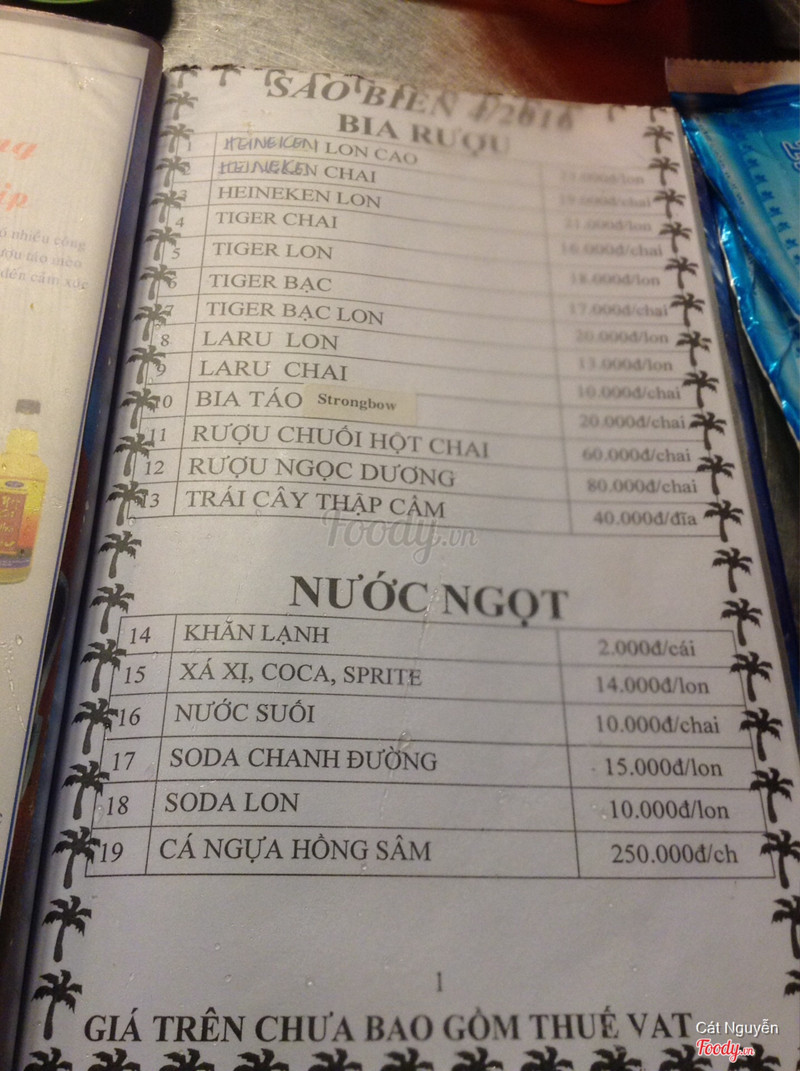 ó nhiều công
ượu táo mèo
đến cảm xúc
SAO BIỂN 4/2016
BIA RƯỢU
1 HEINEKEN LON CAO /lon
2 HEINEKEN CHAI 19.000đ/chai
3 HEINEKEN LON 21.000đ/lon
4 TIGER CHAI 16.000đ/chai
5 TIGER LON 18.000đ/lon
6 TIGER BẠC 17.000đ/chai
7 TIGER BẠC LON 20.000đ/lon
8 LARU LON 13.000đ/lon
9 LARU CHAI 10.000đ/chai
10 BIA TÁO Strongbow 20.000đ/chai
11 RƯỢU CHUỐI HỘT CHAI 60.000đ/chai
12 RƯỢU NGỌC DƯƠNG 80.000đ/chai
13 TRÁI CÂY THẬP CẨM 40.000đ/đĩa
Foody.vn
NƯỚC NGỌT
14 KHĂN LẠNH 2.000đ/cái
15 XÁ XỊ, COCA, SPRITE 14.000đ/lon
16 NƯỚC SUỐI 10.000đ/chai
17 SODA CHANH ĐƯỜNG 15.000đ/lon
18 SODA LON 10.000đ/lon
19 CÁ NGỰA HỒNG SÂM 250.000đ/ch
1
GIÁ TRÊN CHƯA BAO GỒM THUẾ VAT
Cát Nguyễn
Foody.vn